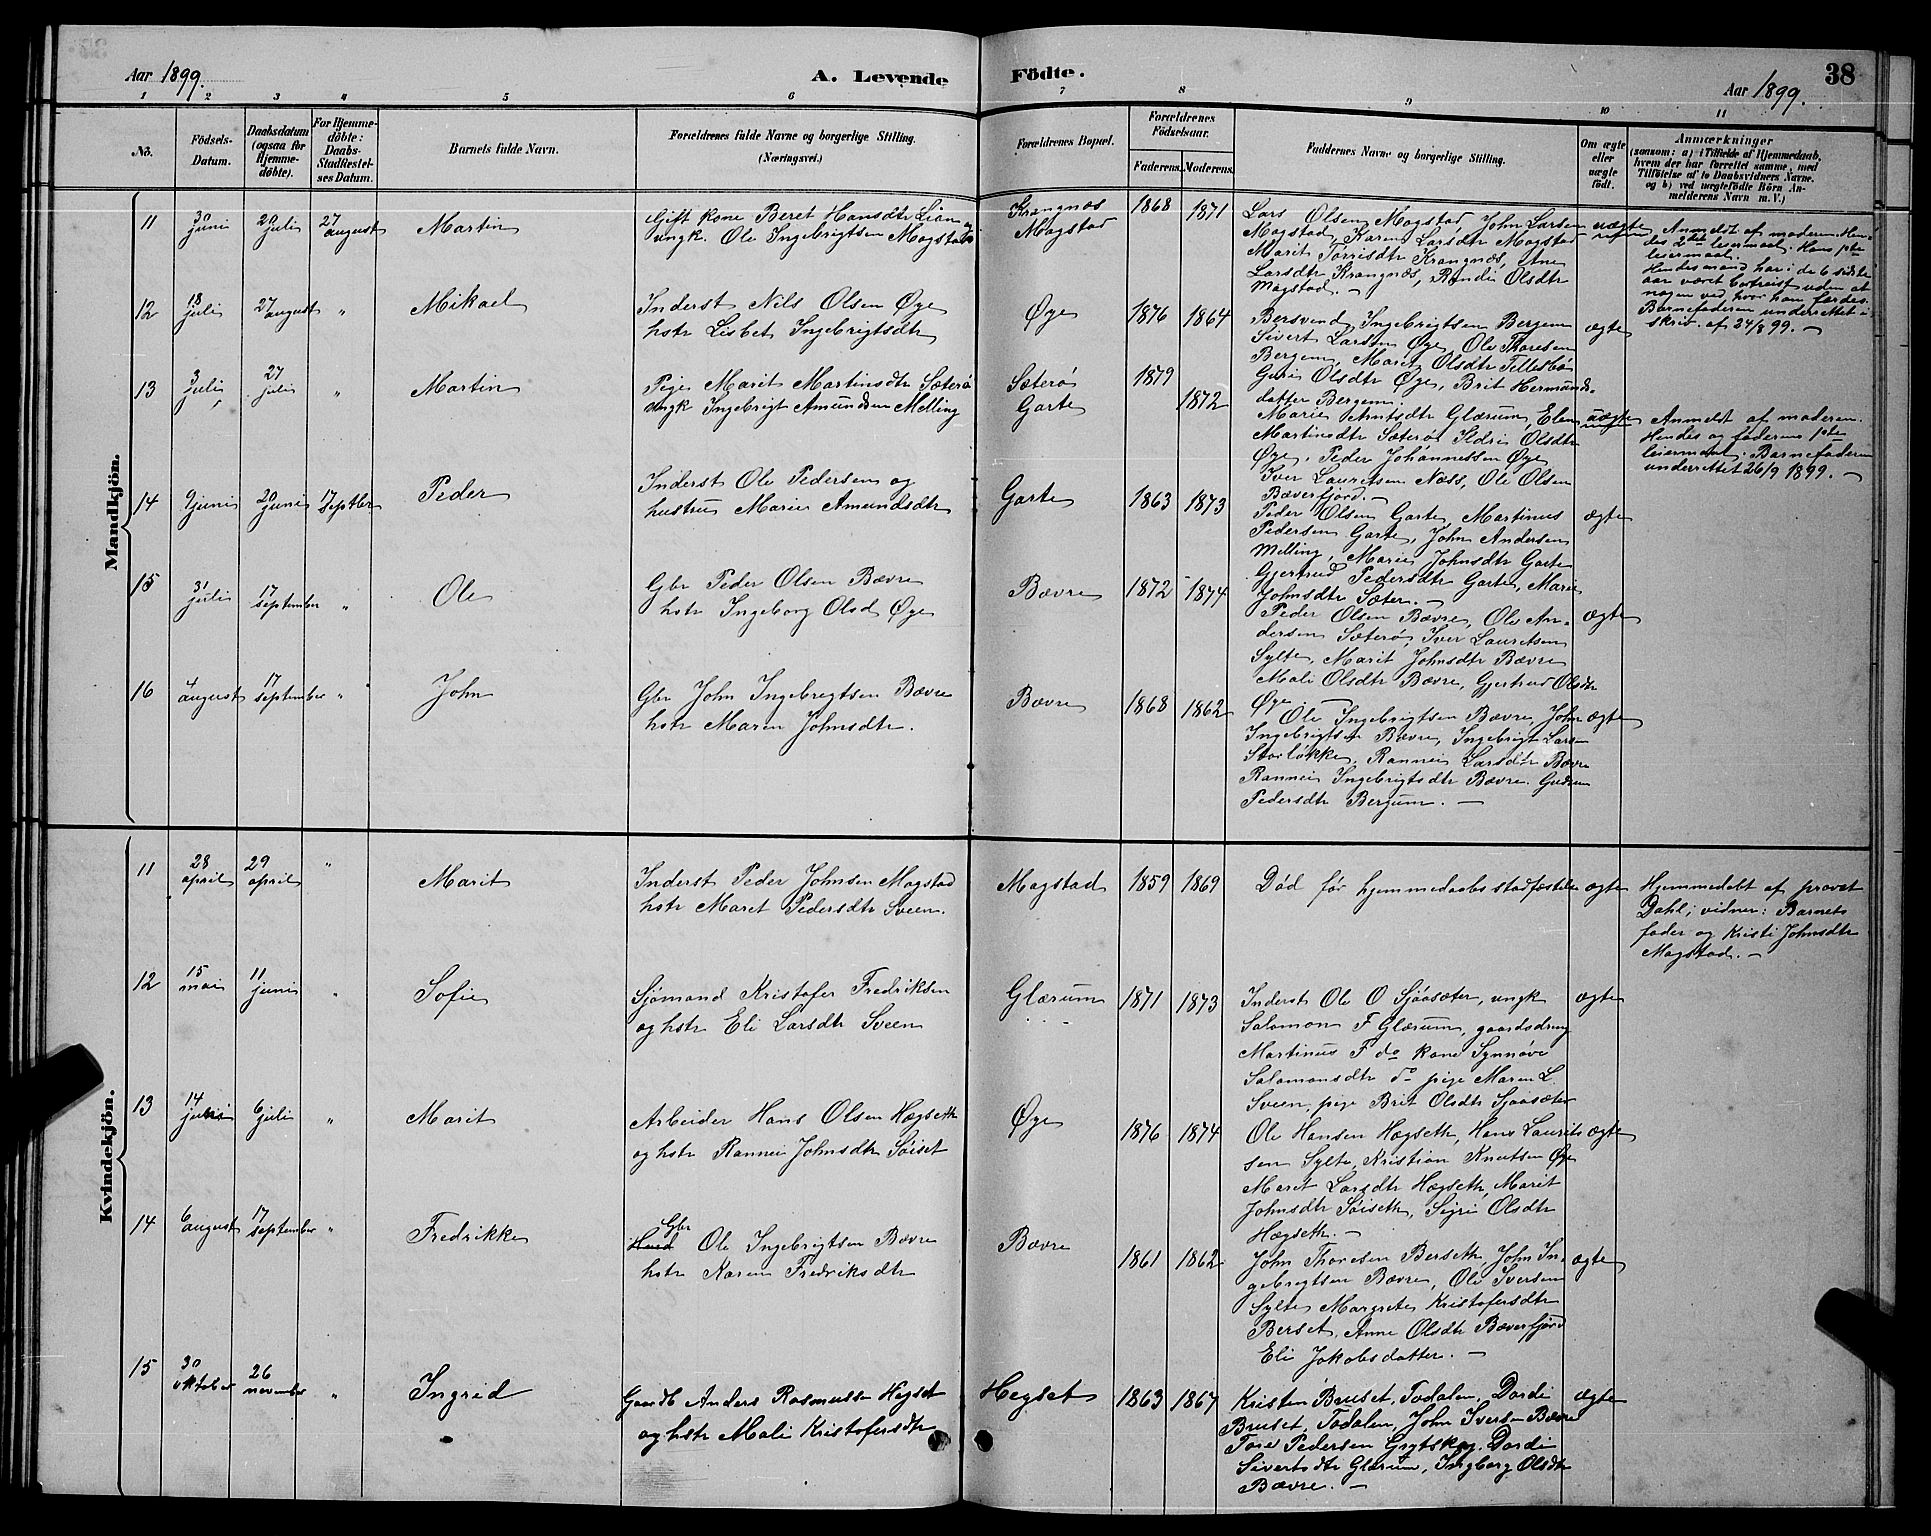 Aar 1899.
A. Levende Födte.
Aar 1899.
38
1 2 3 4 5 6 7 8 9 10 11
No.
Födsels-Datum.
Daabsdatum (ogsaa for Hjemme-döbte).
For Hjemme-döbte: Daabs-Stadfæstel-ses Datum.
Barnets fulde Navn.
Forældrenes fulde Navne og borgerlige Stilling.
(Næringsvei.)
Forældrenes Bopæl.
Forældrenes Födselsaar.
Faderens. Moderens.
Faddernes Navne og borgerlige Stilling.
Om ægte eller uægte födt.
Anmærkninger
(saasom: a) i Tilfælde af Hjemmedaab,
hvem der har forrettet samme, med
Tilföielse af to Daabsvidners Navne.
og b) ved uægtefödte Börn An-
melderens Navn m. V.)
Mandkjön.
11 30 juni 20 juli 27 august Martin
Gift kone Beret Hansdtr Lian og
ungk. Ole Ingebrigtsen Magstad
Krangnæs
Magstad
1868 1871
Lars Olsen Magstad, John Larsen
Magstad, Karen Larsdtr Magstad
Marit Torrisdtr Krangnæs, Ane
Larsdtr Krangnæs, Randi Olsdtr
Magstad. —
uægte
Anmeldt af moderen. Hen-
des 2det leiermaal. Hans 1ste
Hendes mand har i de 6 sidste
aar været bortreist uden at
nogen ved, hvor han færdes.
Barnefaderen underrettet i
skriv. af 24/8 99. —
12 18 juli 27 august " Mikael
Inderst Nils Olsen Øye
hstr Lisbet Ingebrigtsdtr
Øye 1876 1864
Bersvend Ingebrigtsen Bergem
Sivert Larsen Øye, Ole Thoresen
Bergem, Marit Olsdtr Tellesbø
Guri Olsdtr Øye, Brit Hermunds-
datter Bergem.
ægte
13 3 juli 27 juli " Martin
Pige Marit Martinsdtr Sæterø
ungk Ingebrigt Amundsen Melling
Sæterø
Garte
1879
1872
Marie Arntsdtr Glærum, Elen
Martinsdtr Sæterø, Ildri Olsdtr
Øye, Peder Johannessen Øye
Iver Lauritsen Næss, Ole Olsen
Bæverfjord. —
uægte
Anmeldt af moderen.
Hendes og faderens 1ste
leiermaal. Barnefaderen
underrettet 26/9 1899. —
14 9 juni 20 juni 17 septbr Peder
Inderst Ole Pedersen og
hustru Marie Amundsdtr
Garte 1863 1873
Peder Olsen Garte, Martinus
Pedersen Garte, John Andersen
Melling, Marie Johnsdtr Garte
Gjertrud Pedersdtr Garte, Marie
Johnsdtr Sæter. —
ægte
15 31 juli 17 september " Ole
Gbr Peder Olsen Bævre
hstr Ingeborg Olsd Øye
Bævre 1872 1874
Peder Olsen Bævre, Ole An-
dersen Sæterø, Iver Lauritsen
Sylte, Marit Johnsdtr Bævre
Mali Olsdtr Bævre, Gjertrud Olsdtr
Øye —
ægte
16 4 august 17 september " John
Gbr John Ingebrigtsen Bævre
hstr Maren Johnsdtr.
Bævre 1868 1862
Ole Ingebrigtsen Bævre, John
Ingebrigtsen Bævre, Ingebrigt Larsen
Storløkken, Rannei Larsdtr Bævre
Rannei Ingebrigtsdtr Bævre. Gudrun
Pedersdtr Bergum. —
ægte
Kvindekjön.
11 28 april 29 april " Marit
Inderst Peder Johnsen Magstad
hstr Maret Pedersdtr Sveen.
Magstad 1859 1869
Død før hjemmedaabs stadfæstelse
ægte
Hjemmedøbt af provst
Dahl; vidner: Barnets
fader og Kristi Johnsdtr
Magstad. —
12 15 mai 11 juni " Sofie
Sjømand Kristofer Fredriksen
og hstr Eli Larsdtr Sveen
Glærum 1871 1873
Inderst Ole O Sjøasæter, ungk
Salomon F Glærum, gaardsdreng
Martinus F do kone Synnøve
Salamonsdtr do pige Maren L.
Sveen, pige Brit Olsdtr Sjøasæter
ægte
13 14 juni 6 juli " Marit
Arbeider Hans Olsen Hægseth
og hstr Rannei Johnsdtr Søiset
Øye 1876 1874
Ole Hansen Hægseth, Hans Laurits
sen Sylte, Kristian Knutsen Øye
Marit Larsdtr Hægseth, Marit
Johnsdtr Søiseth, Sigri Olsdtr
Hægseth. —
ægte
14 6 august 17 september " Fredrikke
Gbr
Ole Ingebrigtsen Bævre
hstr Karen Fredriksdtr
Bævre 1861 1862
John Thoresen Berseth, John In-
gebrigtsen Bævre, Ole Iversen
Sylte, Margrete Kristofersdtr
Berset, Anne Olsdtr Bæverfjord
Eli Jakobsdatter. —
ægte
15 30 oktober 26 november " Ingrid
Gaardb Anders Rasmussen Hegset
og hstr Mali Kristofersdtr
Hegset 1863 1867
Kristen Bruset, Todalen, Dordi
Bruset, Todalen, John Iversen Bævre
Tore Pedersen Grytskog. Dordi
Sivertsdtr Glærum, Ingborg Olsdtr
Bævre. —
ægte